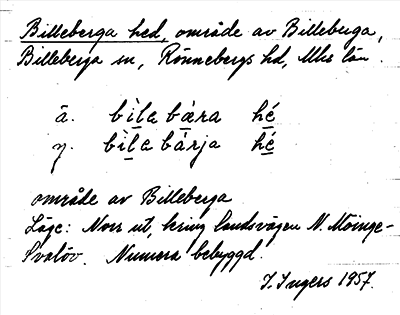 Billeberga hed, område av Billeberga,
Billeberga sn, Rönnebergs hd, Mhs län.
ä. bìla bæra hé
y. bìla bārja hé
område av Billeberga
Läge: Norr ut, kring landsvägen N. Möinge-
Svalöv. Numera bebyggd.
I. Ingers 1957.